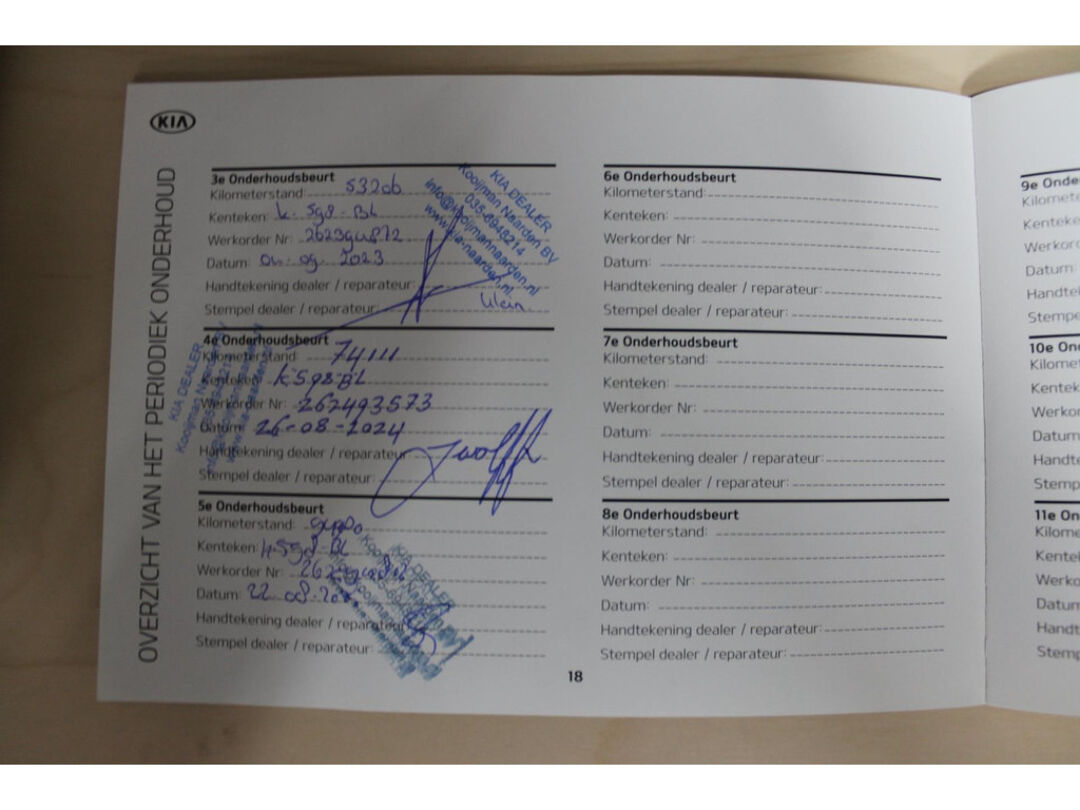 KIA
OVERZICHT VAN HET PERIODIEK ONDERHOUD
3e Onderhoudsbeurt
Kilometerstand: 53206
Kenteken: K-598-BL
Werkorder Nr:
Datum: 04-09-2023
Handtekening dealer / reparateur:
Stempel dealer / reparateur:
KIA DEALER
Kooijman Naarden BV
035-6948214
info@kooijmannaarden.nl
www.kia-naarden.nl
4e Onderhoudsbeurt
Kilometerstand: 74111
Kenteken: K598BL
Werkorder Nr: 262493573
Datum: 26-08-2024
Handtekening dealer / reparateur:
Stempel dealer / reparateur:
KIA DEALER
Kooijman Naarden BV
5e Onderhoudsbeurt
Kilometerstand:
Kenteken:
Werkorder Nr:
Datum: 22-08-
Handtekening dealer / reparateur:
Stempel dealer / reparateur:
KIA DEALER
6e Onderhoudsbeurt
Kilometerstand:
Kenteken:
Werkorder Nr:
Datum:
Handtekening dealer / reparateur:
Stempel dealer / reparateur:
7e Onderhoudsbeurt
Kilometerstand:
Kenteken:
Werkorder Nr:
Datum:
Handtekening dealer / reparateur:
Stempel dealer / reparateur:
8e Onderhoudsbeurt
Kilometerstand:
Kenteken:
Werkorder Nr:
Datum:
Handtekening dealer / reparateur:
Stempel dealer / reparateur:
18
9e Onde
Kilomete
Kenteke
Werkorc
Datum:
Handte
Stempe
10e On
Kilome
Kentek
Werko
Datum
Handt
Stemp
11e On
Kilome
Kente
Werko
Datum
Handt
Stemp